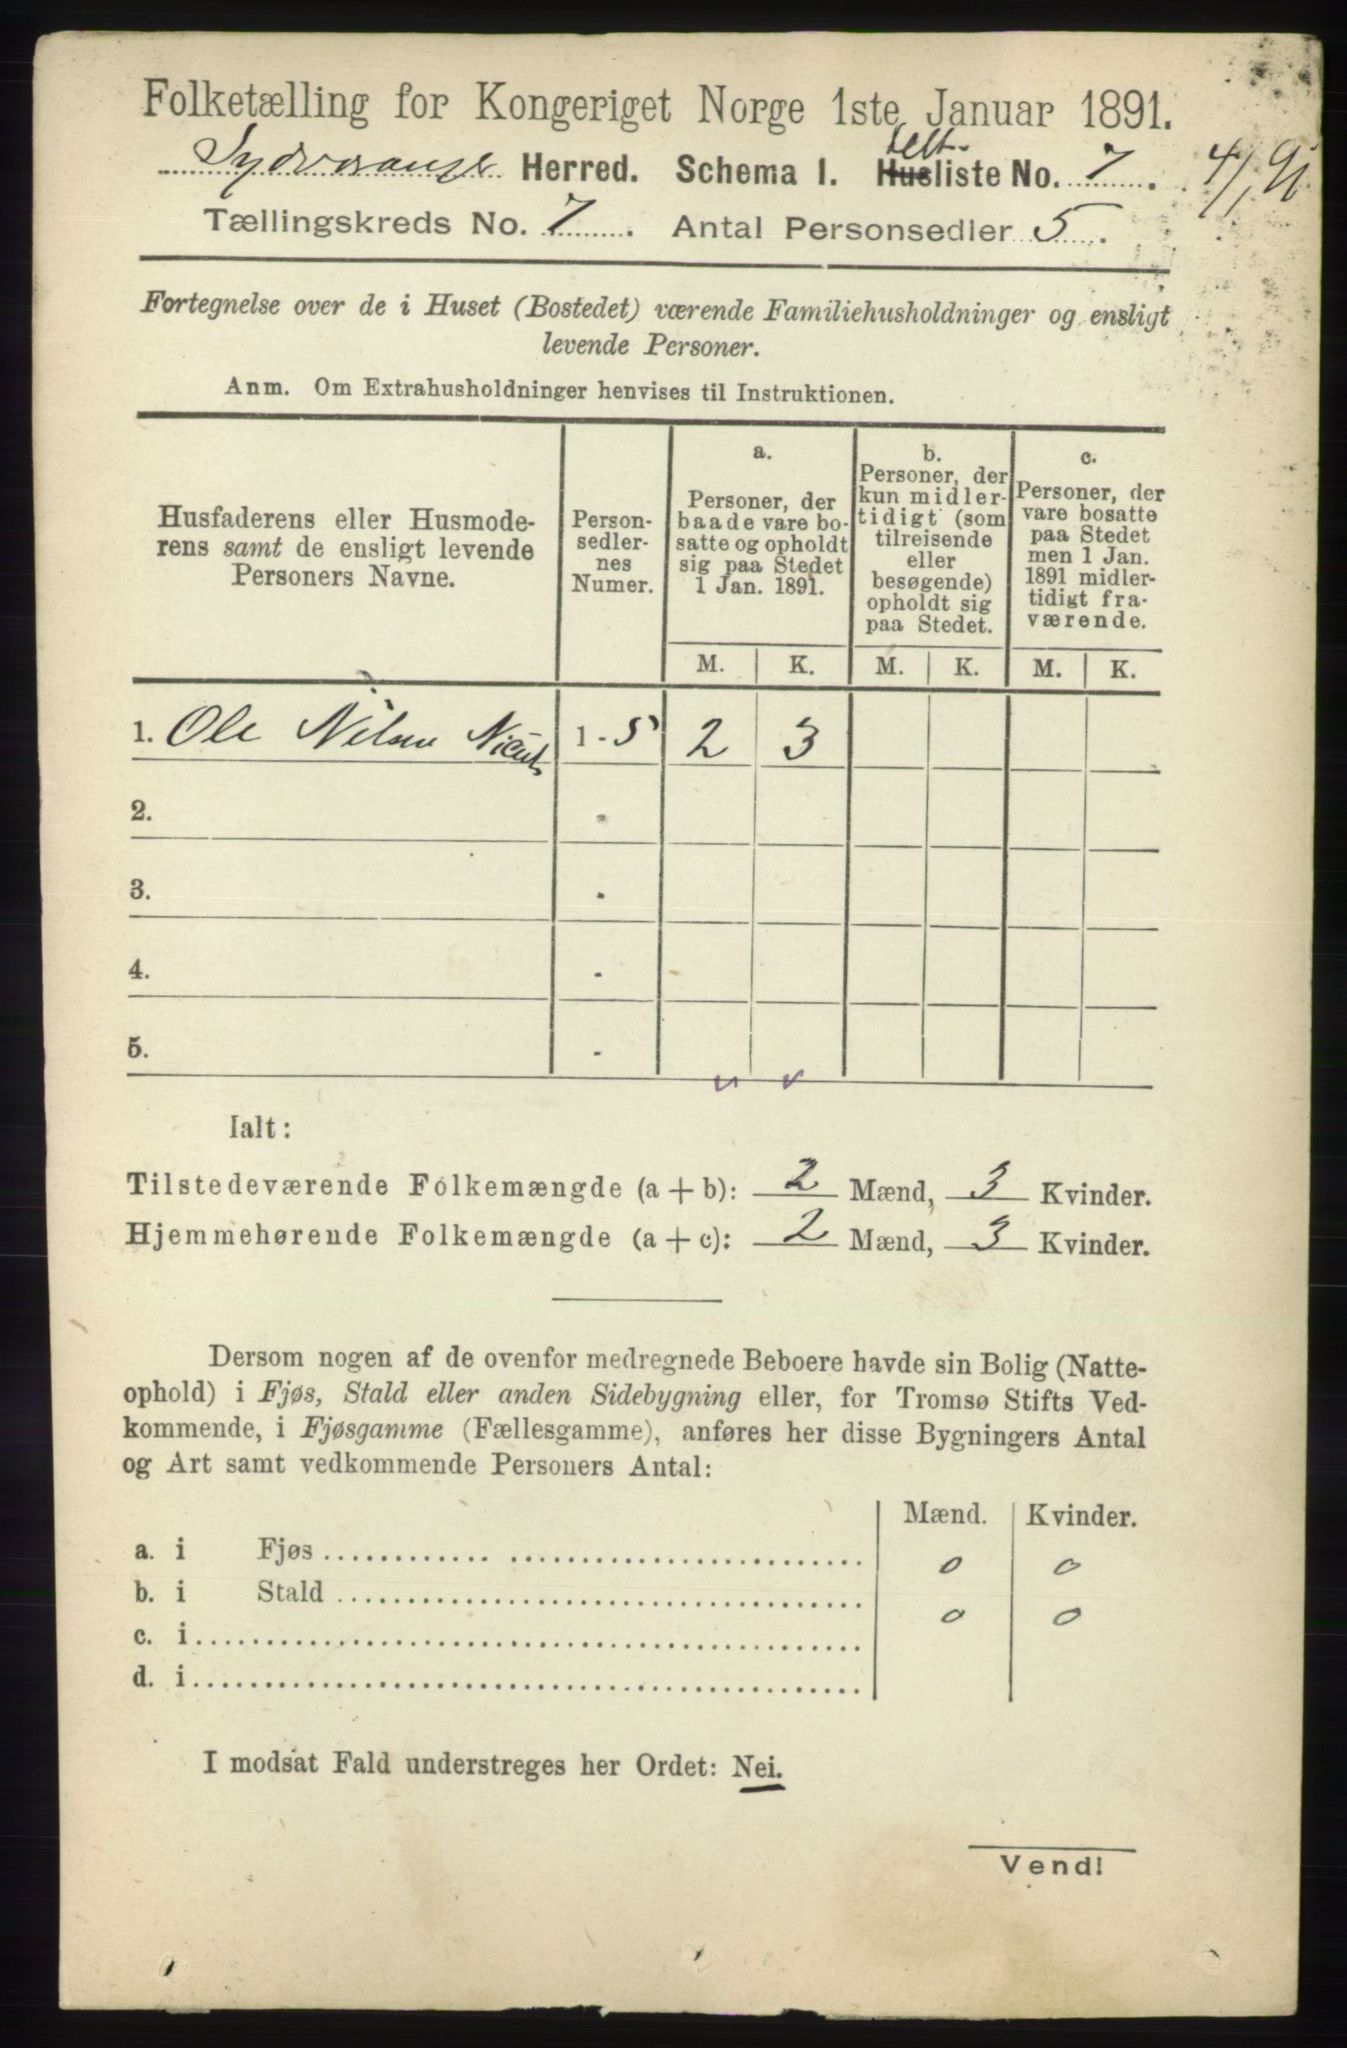 Folketælling for Kongeriget Norge 1ste Januar 1891.
Sydvaranger Herred. Schema I. Husliste No. 7.
Telt-
4/1 91
Tællingskreds No. 7. Antal Personsedler 5.
Fortegnelse over de i Huset (Bostedet) værende Familiehusholdninger og ensligt
levende Personer.
Anm. Om Extrahusholdninger henvises til Instruktionen.
Husfaderens eller Husmode-
rens samt de ensligt levende
Personers Navne.
Person-
sedler-
nes
Numer.
a.
Personer, der
baade vare bo-
satte og opholdt
sig paa Stedet
1 Jan. 1891.
b.
Personer, der
kun midler-
tidigt (som
tilreisende
eller
besøgende)
opholdt sig
paa Stedet.
c.
Personer, der
vare bosatte
paa Stedet
men 1 Jan.
1891 midler-
tidigt fra-
værende.
M. K. M. K. M. K.
1. Ole Nilsen 1 - 5 2 3
2. -
3. -
4. -
5. -
Ialt:
Tilstedeværende Folkemængde (a + b): 2 Mænd, 3 Kvinder.
Hjemmehørende Folkemængde (a + c): 2 Mænd, 3 Kvinder.
Dersom nogen af de ovenfor medregnede Beboere havde sin Bolig (Natte-
ophold) i Fjøs, Stald eller anden Sidebygning eller, for Tromsø Stifts Ved-
kommende, i Fjøsgamme (Fællesgamme), anføres her disse Bygningers Antal
og Art samt vedkommende Personers Antal:
Mænd. Kvinder.
a. i Fjøs 0 0
b. i Stald 0 0
c. i
d. i
I modsat Fald understreges her Ordet: Nei.
Vend!